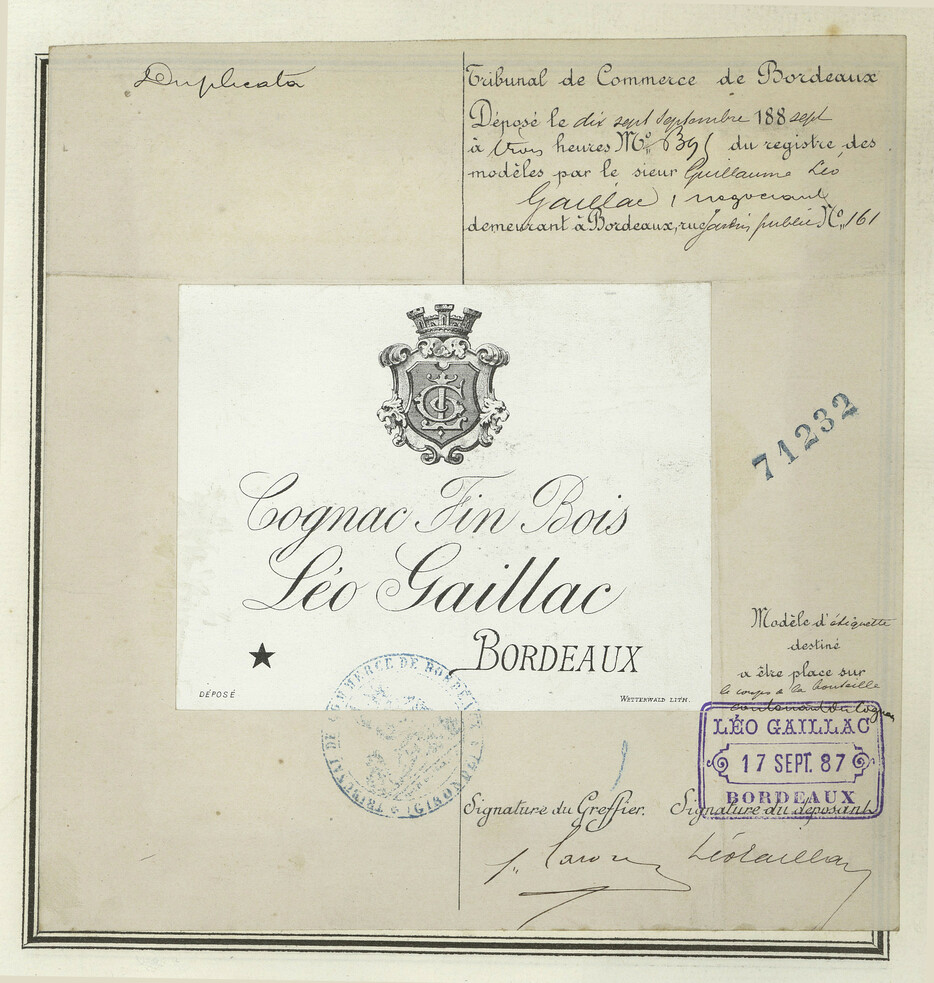 Duplicata
Tribunal de Commerce de Bordeaux
Déposé le dix sept Septembre 188 sept
à trois heures du registre des
modèles par le sieur Guillaume Léo
Gaillac, négociant
demeurant à Bordeaux, rue Jardin public No. 161
Cognac Fin Bois
Léo Gaillac
BORDEAUX
DÉPOSÉ
WETTERWALD LITH.
71232
Modèle d'étiquette
destiné
a être place sur
le corps de la bouteille
contenant du Cognac
LÉO GAILLAC
17 SEPT. 87
BORDEAUX
TRIBUNAL DE COMMERCE DE BORDEAUX
(GIRONDE)
Signature du Greffier. Signature du déposant
Léo Gaillac